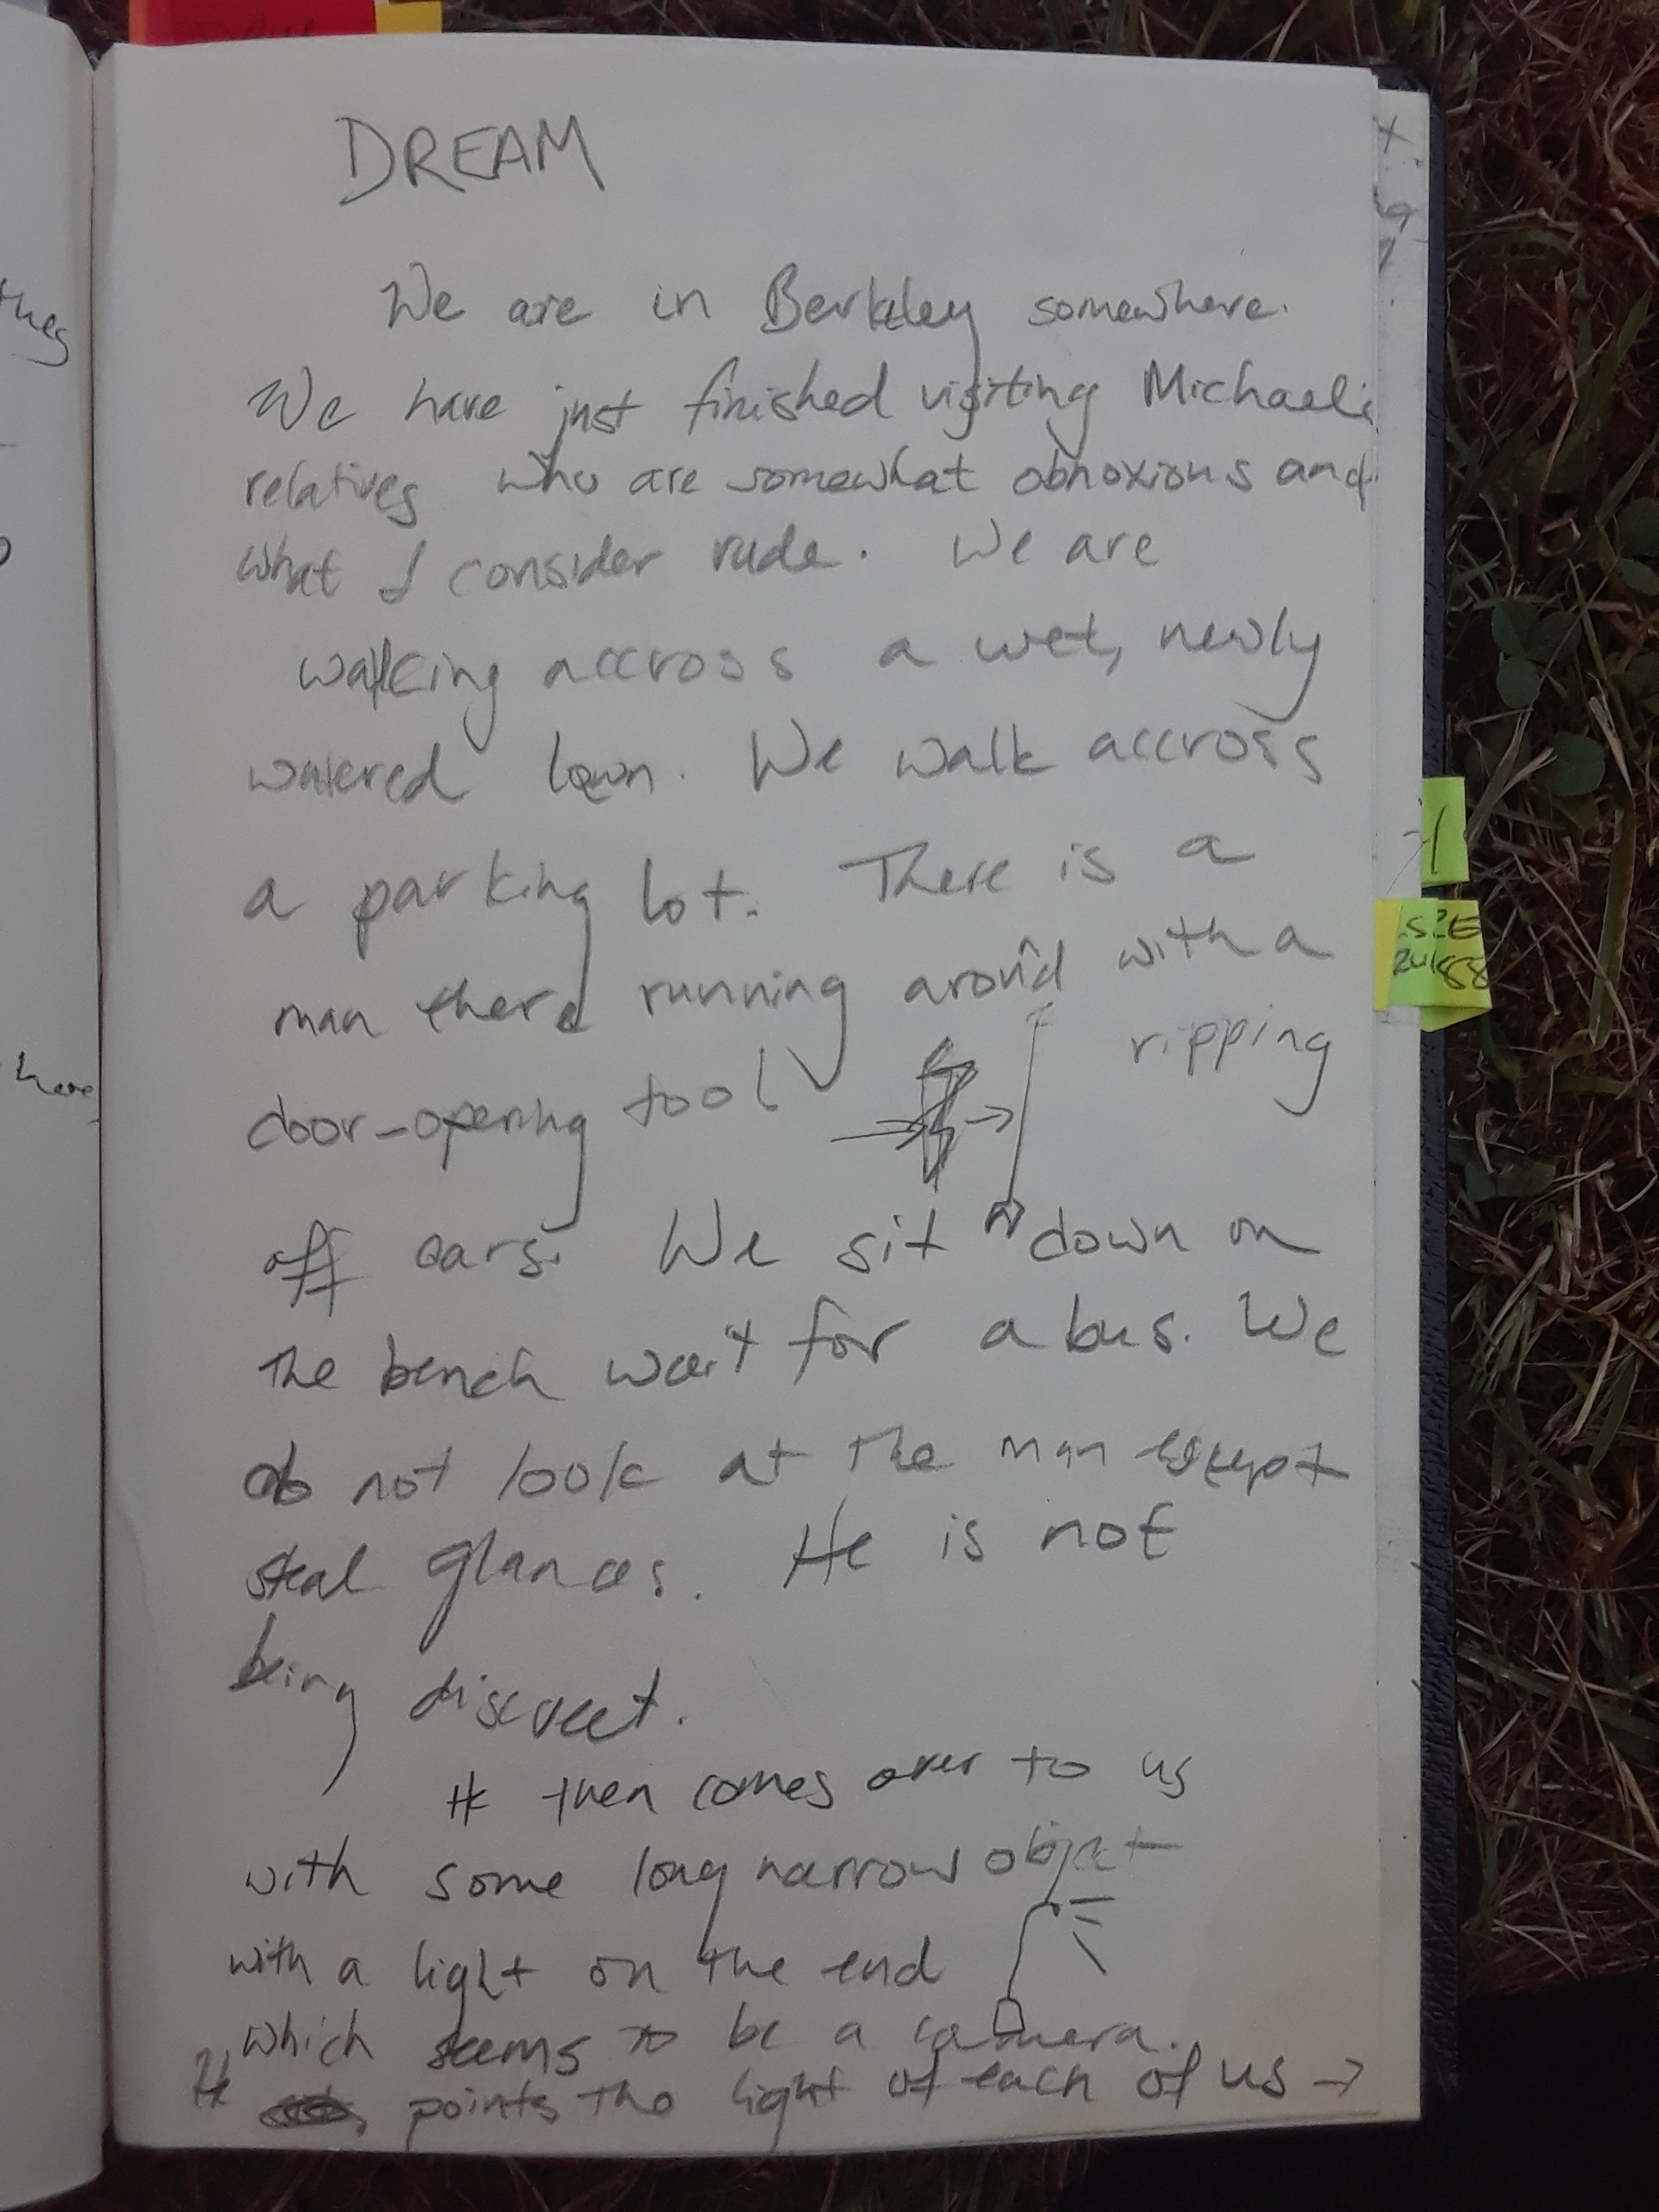 DREAM
We are in Berkley somewhere.
We have just finished visiting Michaels
relatives who are somewhat obnoxious and
what I consider rude. We are
walking accross a wet, newly
watered lawn. We walk accross
a parking lot. There is a
man there running around with a
door-opening tool ripping
off cars. We sit down on
the bench wait for a bus. We
do not look at the man except
steal glances. He is not
being discreet.
He then comes over to us
with some long narrow object
with a light on the end
which seems to be a camera.
He points the light of each of us →
here